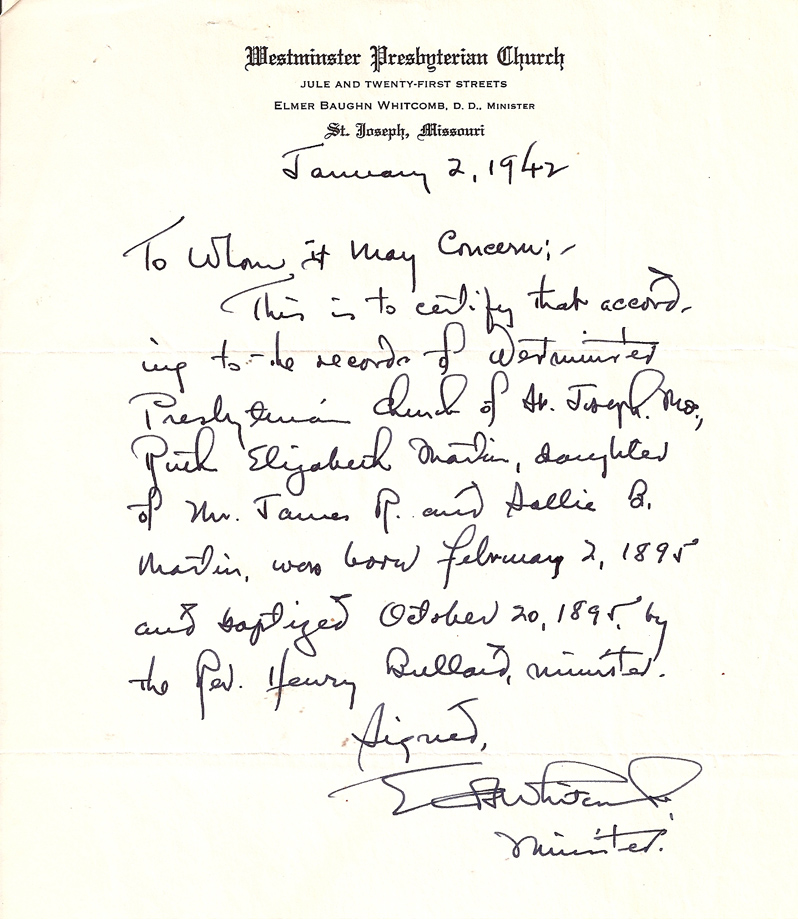 Westminster Presbyterian Church
JULE AND TWENTY-FIRST STREETS
ELMER BAUGHN WHITCOMB, D. D., MINISTER
St. Joseph, Missouri
January 2, 1942
To Whom it May Concern:-
This is to certify that accord-
ing to the records of Westminster
Presbyterian Church of St. Joseph, Mo.,
Ruth Elizabeth Martin, daughter
of Mr. James R. and Sallie B.
Martin, was born February 2, 1895
and baptized October 20, 1895, by
the Rev. Henry Bullard, minister.
Signed,
E B Whitcomb,
Minister.